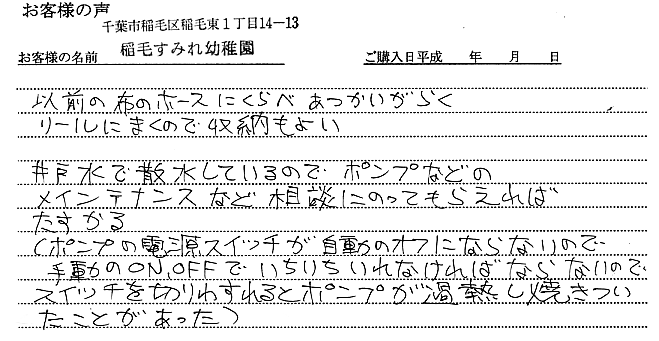 お客様の声
千葉市稲毛区稲毛東1丁目14-13
お客様の名前 稲毛すみれ幼稚園 ご購入日平成 年 月 日
以前の布のホースにくらべ あつかいがらく
リールにまくので収納もよい
井戸水で散水しているので ポンプなどの
メインテナンスなど 相談にのってもらえれば
たすかる
(ポンプの電源スイッチが自動のオフにならないので
手動のON,OFFでいちいちいれなければならないので
スイッチを切りわすれるとポンプが過熱し焼きつい
たことがあった)